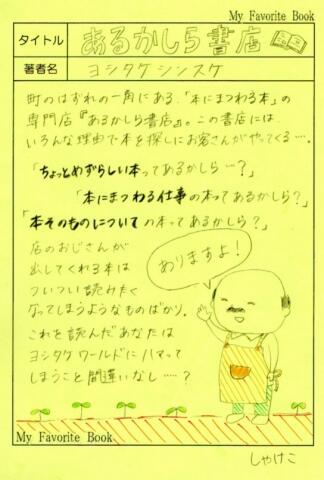 My Favorite Book
タイトル
あるかしら書店
著者名
ヨシタケシンスケ
町のはずれの一角にある、「本にまつわる本」の
専門店『あるかしら書店』。この書店には、
いろんな理由で本を探しにお客さんがやってくる…。
「ちょっとめずらしい本ってあるかしら…？」
「本にまつわる仕事の本ってあるかしら？」
「本そのものについての本ってあるかしら？」
店のおじさんが
出してくれる本は
ついつい読みたく
なってしまうようなものばかり。
これを読んだあなたは
ヨシタケワールドにハマって
しまうこと間違いなし……？
ありますよ！
My Favorite Book
しゃけこ